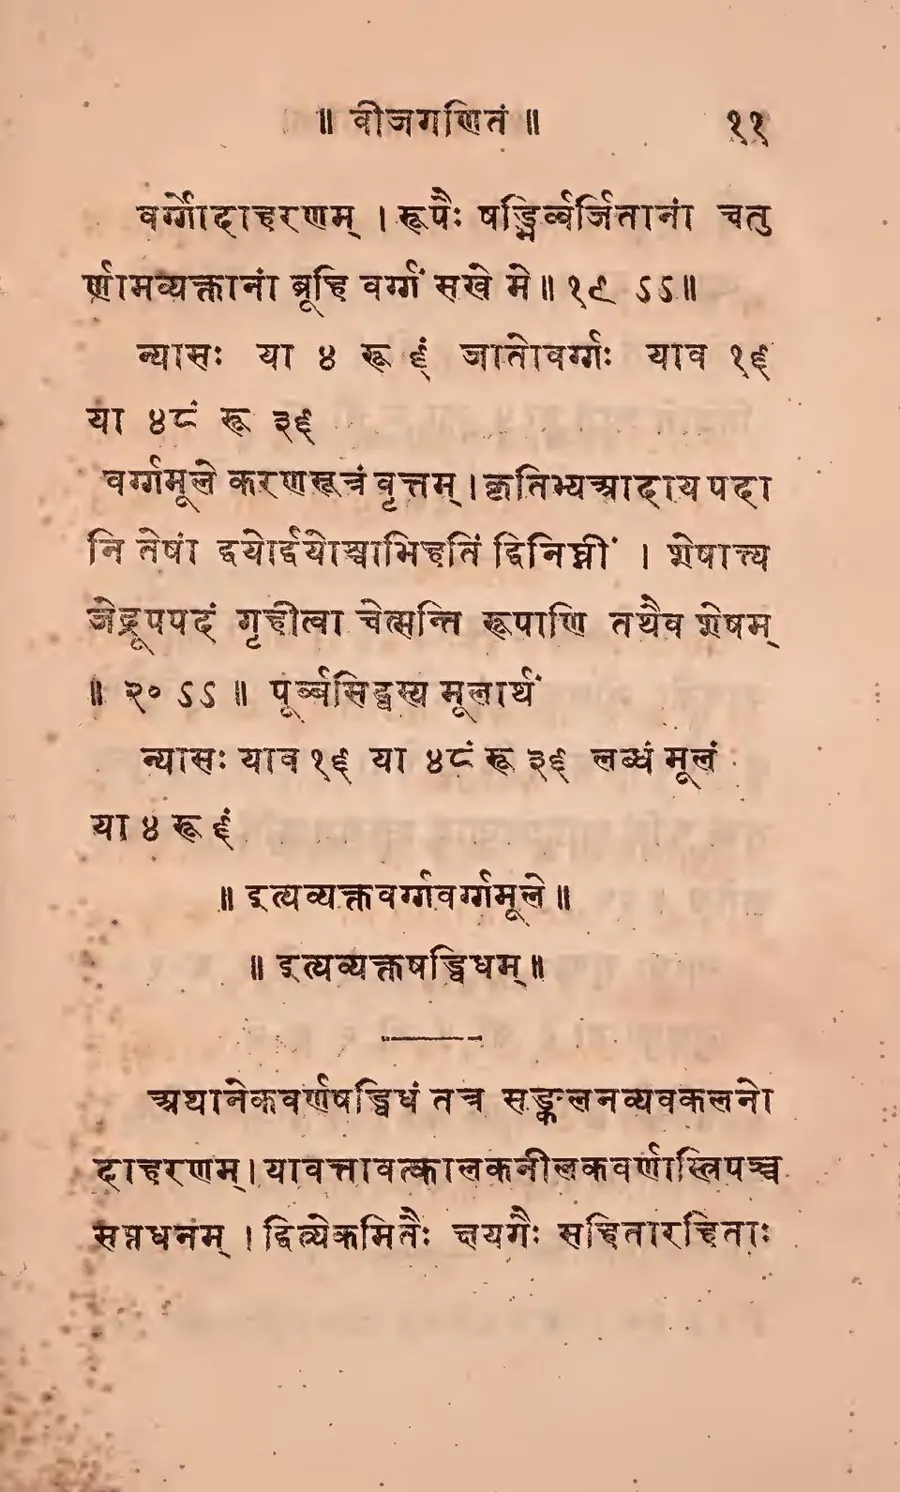 ॥ वीजगणितं ॥ ११
वर्ग्गोदाहरणम् । रूपैः षड्भिर्व्वर्जितानां चतु
र्णामव्यक्तानां ब्रूहि वर्ग्गं सखे मे ॥ १९ ऽऽ ॥
न्यासः या ४ रू ६ं जातोवर्ग्गः याव १६
या ४८ं रू ३६
वर्ग्गमूले करणसूत्रं वृत्तम् । कृतिभ्यआदाय पदा
नि तेषां द्वयोर्द्वयोश्चाभिहतिं द्विनिघ्नीं । शेषात्त्य
जेद्रूपपदं गृहीत्वा चेत्सन्ति रूपाणि तथैव शेषम्
॥ २० ऽऽ ॥ पूर्व्वसिद्धस्य मूलार्थं
न्यासः याव १६ या ४८ं रू ३६ लब्धं मूलं
या ४ रू ६ं
॥ इत्यव्यक्तवर्ग्गवर्ग्गमूले ॥
॥ इत्यव्यक्तषड्विधम् ॥
अथानेकवर्णषड्विधं तत्र सङ्कलनव्यवकलनो
दाहरणम् । यावत्तावत्कालकनीलकवर्णास्त्रिपञ्च
सप्तधनम् । द्वित्र्येकमितैः क्षयगैः सहितारहिताः